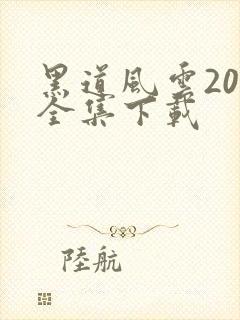 黑道風雲20
全集下載
陸航